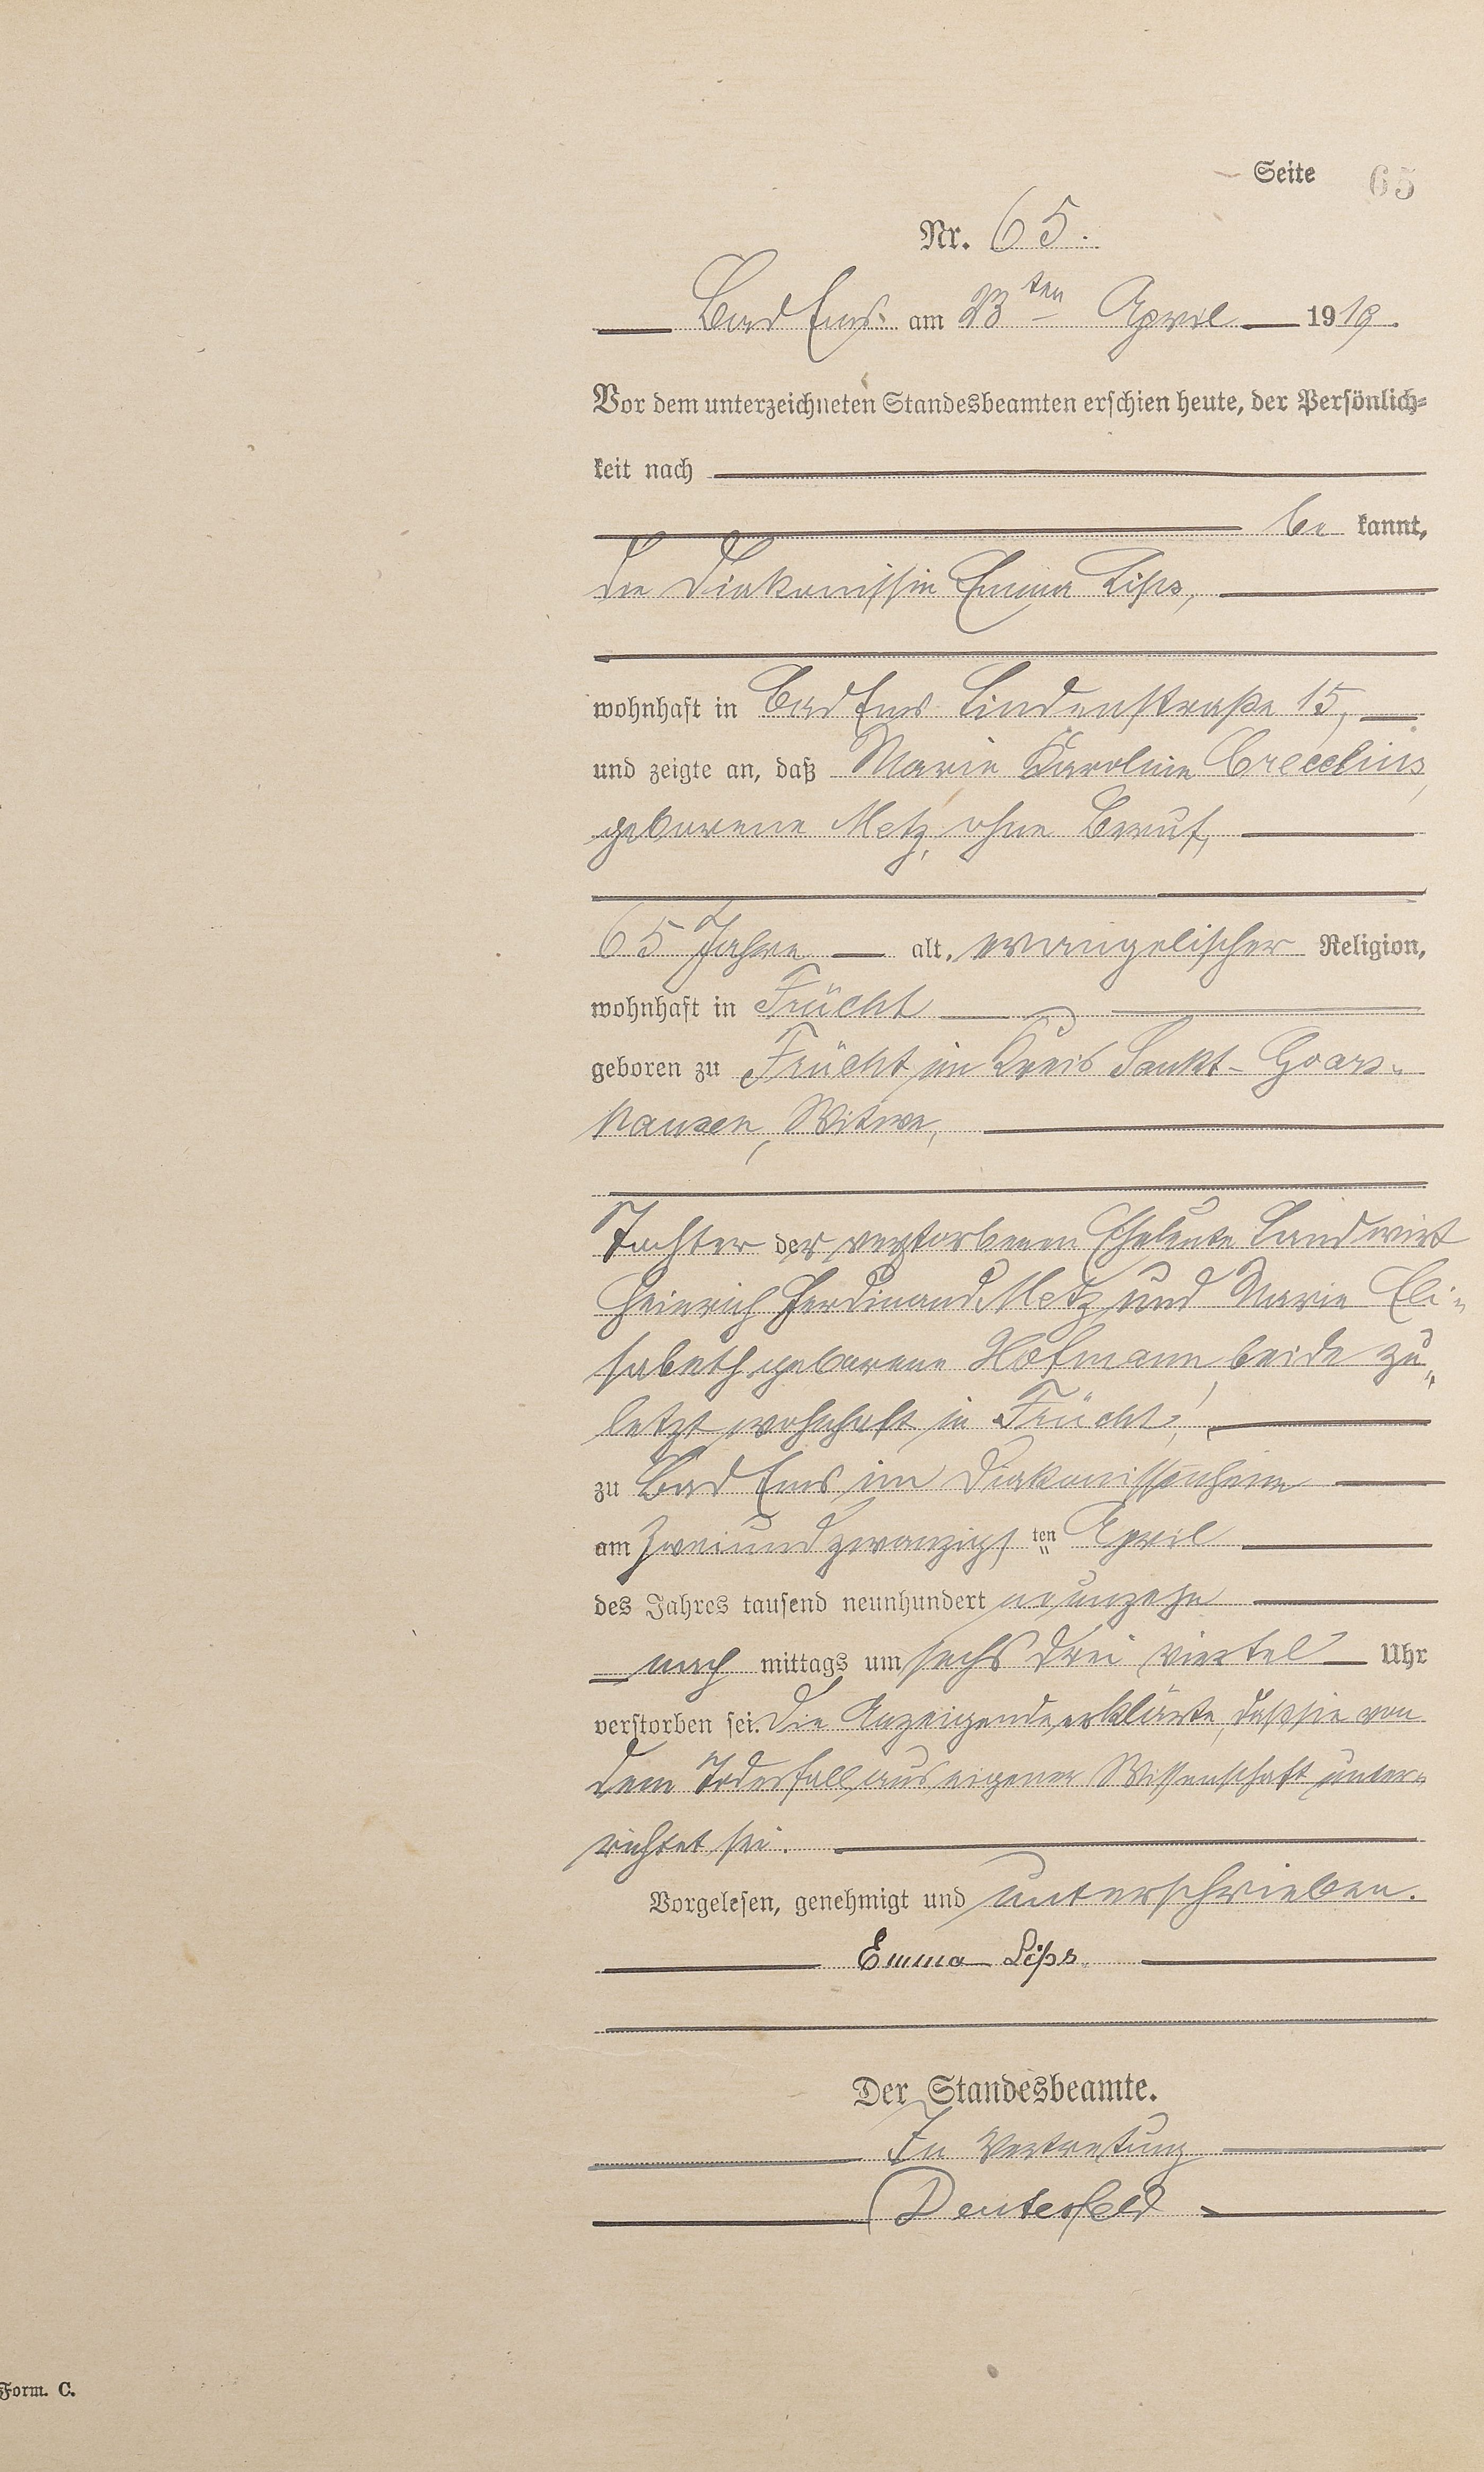 Seite 65
Nr. 65.
Bad Ems am 23ten April 1919.
Vor dem unterzeichneten Standesbeamten erschien heute, der Persönlich-
keit nach
be kannt,
die Diakonissin Emma Lips,
wohnhaft in Bad Ems Lindenstraße 15,
und zeigte an, daß Marie Karoline Crecelius,
geborene Metz, ohne Beruf,
65 Jahre alt, evangelischer Religion,
wohnhaft in Frücht
geboren zu Frücht im Kreis Sankt-Goars-
hausen, Witwe,
Tochter der verstorbenen Eheleute Landwirt
Heinrich Ferdinand Metz und Marie Eli-
sabeth geborene Hofmann, beide zu-
letzt wohnhaft in Frücht,
zu Bad Ems, im Diakonissenheim
am zweiundzwanzigsten April
des Jahres tausend neunhundert neunzehn
nach mittags um sechs drei viertel Uhr
verstorben sei. Die Anzeigende erklärte, daß sie von
dem Todesfall aus eigener Wissenschaft unter-
richtet sei.
Vorgelesen, genehmigt und unterschrieben.
Emma Lips.
Der Standesbeamte.
In Vertretung
Deutesfeld
Form. C.